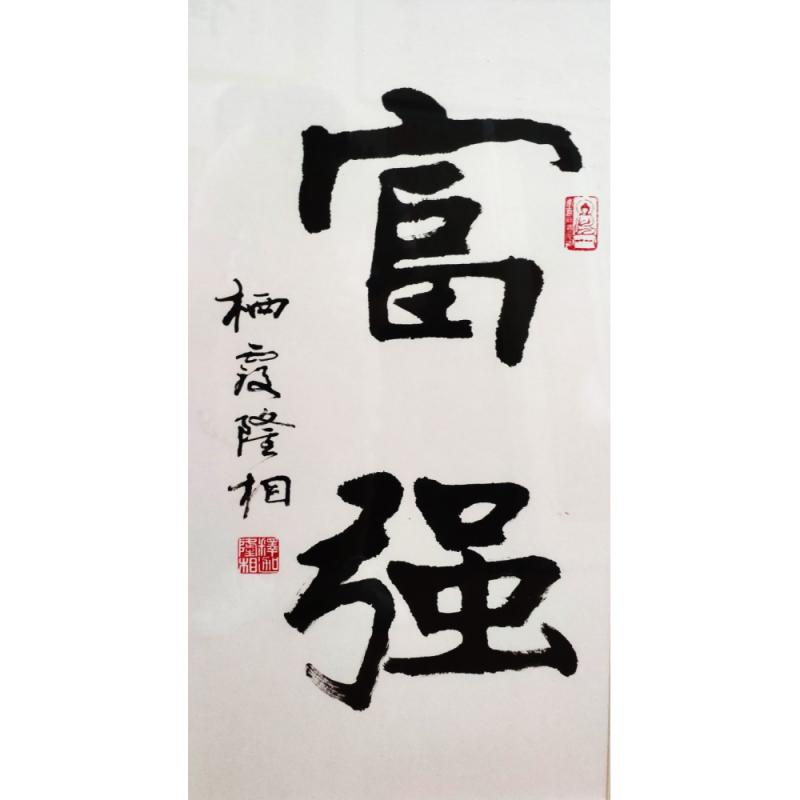 富强
栖霞隆相
釋迦隆相